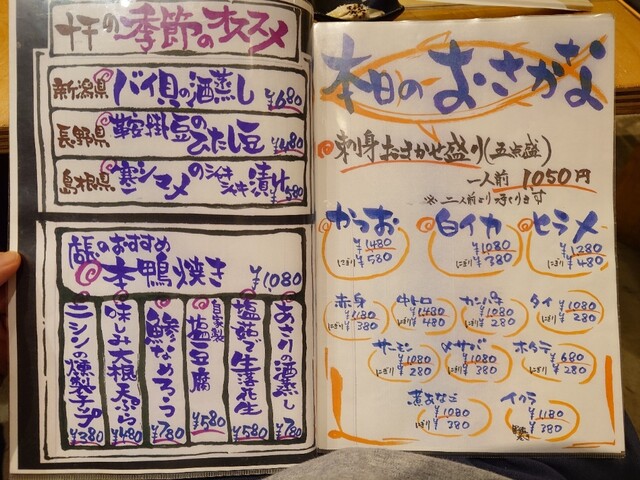 十干の季節のオススメ
新潟県 バイ貝の酒蒸し ¥680
長野県 鞍掛豆のひたし豆 ¥480
島根県 寒シマメのシャキシャキ漬け ¥580
のおすすめ
本鴨焼き ¥1080
あさりの酒蒸し ¥780
塩ゆで生落花生 ¥580
自家製 塩豆腐 ¥580
鯵なめろう ¥780
味しみ大根天ぷら ¥480
ニシンの燻製チップ ¥380
本日のおさかな
刺身おまかせ盛り(五点盛)
一人前 1050円
※二人前より承ります
かつお ¥1480 にぎり ¥580
白イカ ¥1080 にぎり ¥380
ヒラメ ¥1280 にぎり ¥480
赤身 ¥1180 にぎり ¥380
中トロ ¥1480 にぎり ¥480
カンパチ ¥1080 にぎり ¥280
タイ ¥1080 にぎり ¥280
サーモン ¥1080 にぎり ¥280
〆サバ ¥1080 にぎり ¥380
ホタテ ¥680 にぎり ¥280
煮あなご ¥1080 にぎり ¥380
イクラ ¥1180 ¥380